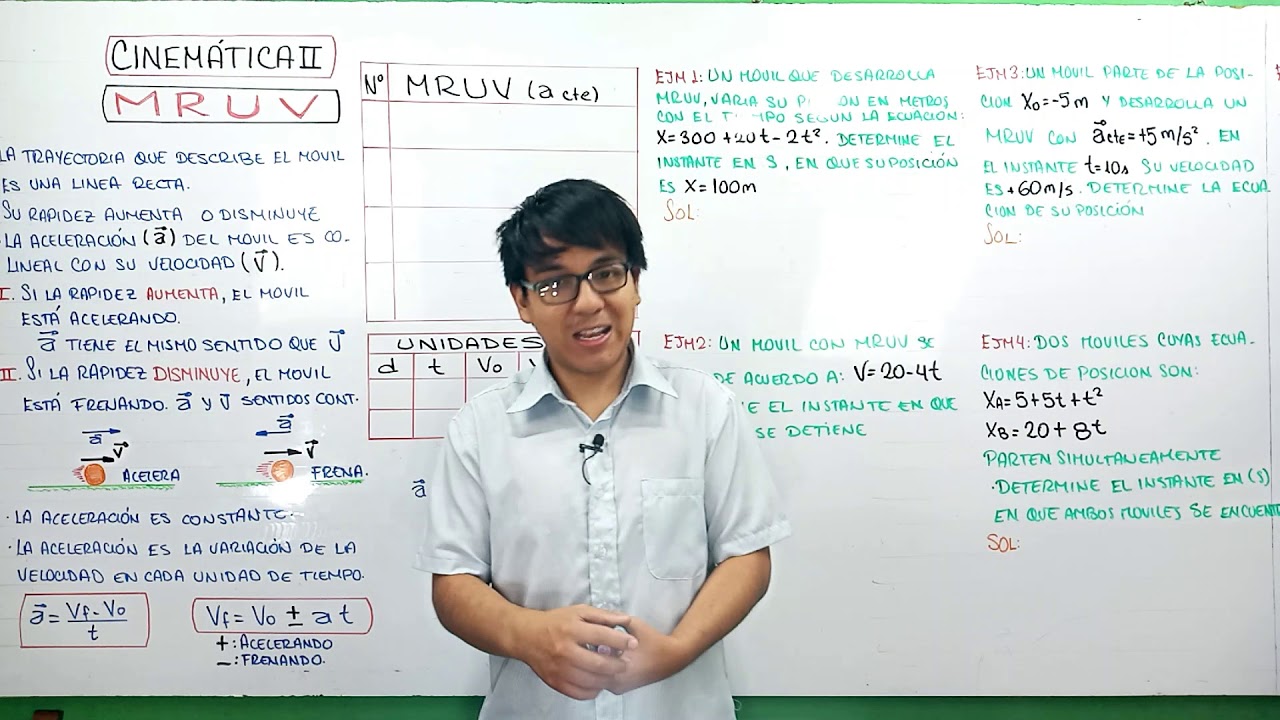 CINEMÁTICA II
MRUV
LA TRAYECTORIA QUE DESCRIBE EL MOVIL
ES UNA LINEA RECTA.
SU RAPIDEZ AUMENTA O DISMINUYE
LA ACELERACIÓN (a⃗) DEL MOVIL ES CO-
LINEAL CON SU VELOCIDAD (V⃗).
I. SI LA RAPIDEZ AUMENTA, EL MOVIL
ESTÁ ACELERANDO.
a⃗ TIENE EL MISMO SENTIDO QUE V⃗
II. SI LA RAPIDEZ DISMINUYE, EL MOVIL
ESTÁ FRENANDO. a⃗ Y V⃗ SENTIDOS CONT.
a⃗ V⃗ ACELERA
a⃗ V⃗ FRENA.
· LA ACELERACIÓN ES CONSTANTE.
· LA ACELERACIÓN ES LA VARIACIÓN DE LA
VELOCIDAD EN CADA UNIDAD DE TIEMPO.
a⃗ = (Vf - Vo)/t
Vf = Vo ± a t
+: ACELERANDO
-: FRENANDO.
Nº MRUV (a cte)
UNIDADES
d t Vo
a⃗
EJM 1: UN MOVIL QUE DESARROLLA
MRUV, VARIA SU EN METROS
CON EL SEGUN LA ECUACIÓN:
X=300+20t-2t². DETERMINE EL
INSTANTE EN S, EN QUE SU POSICIÓN
ES X=100m
SOL:
EJM2: UN MOVIL CON MRUV SE
DE ACUERDO A: V=20-4t
EL INSTANTE EN QUE
SE DETIENE
EJM3: UN MOVIL PARTE DE LA POSI-
CION Xo=-5m Y DESARROLLA UN
MRUV CON a⃗cte=+5m/s². EN
EL INSTANTE t=10s SU VELOCIDAD
ES +60m/s. DETERMINE LA ECUA
CION DE SU POSICIÓN
SOL:
EJM4: DOS MOVILES CUYAS ECUA-
CIONES DE POSICION SON:
XA=5+5t+t²
XB=20+8t
PARTEN SIMULTANEAMENTE
·DETERMINE EL INSTANTE EN (S)
EN QUE AMBOS MOVILES SE
SOL: